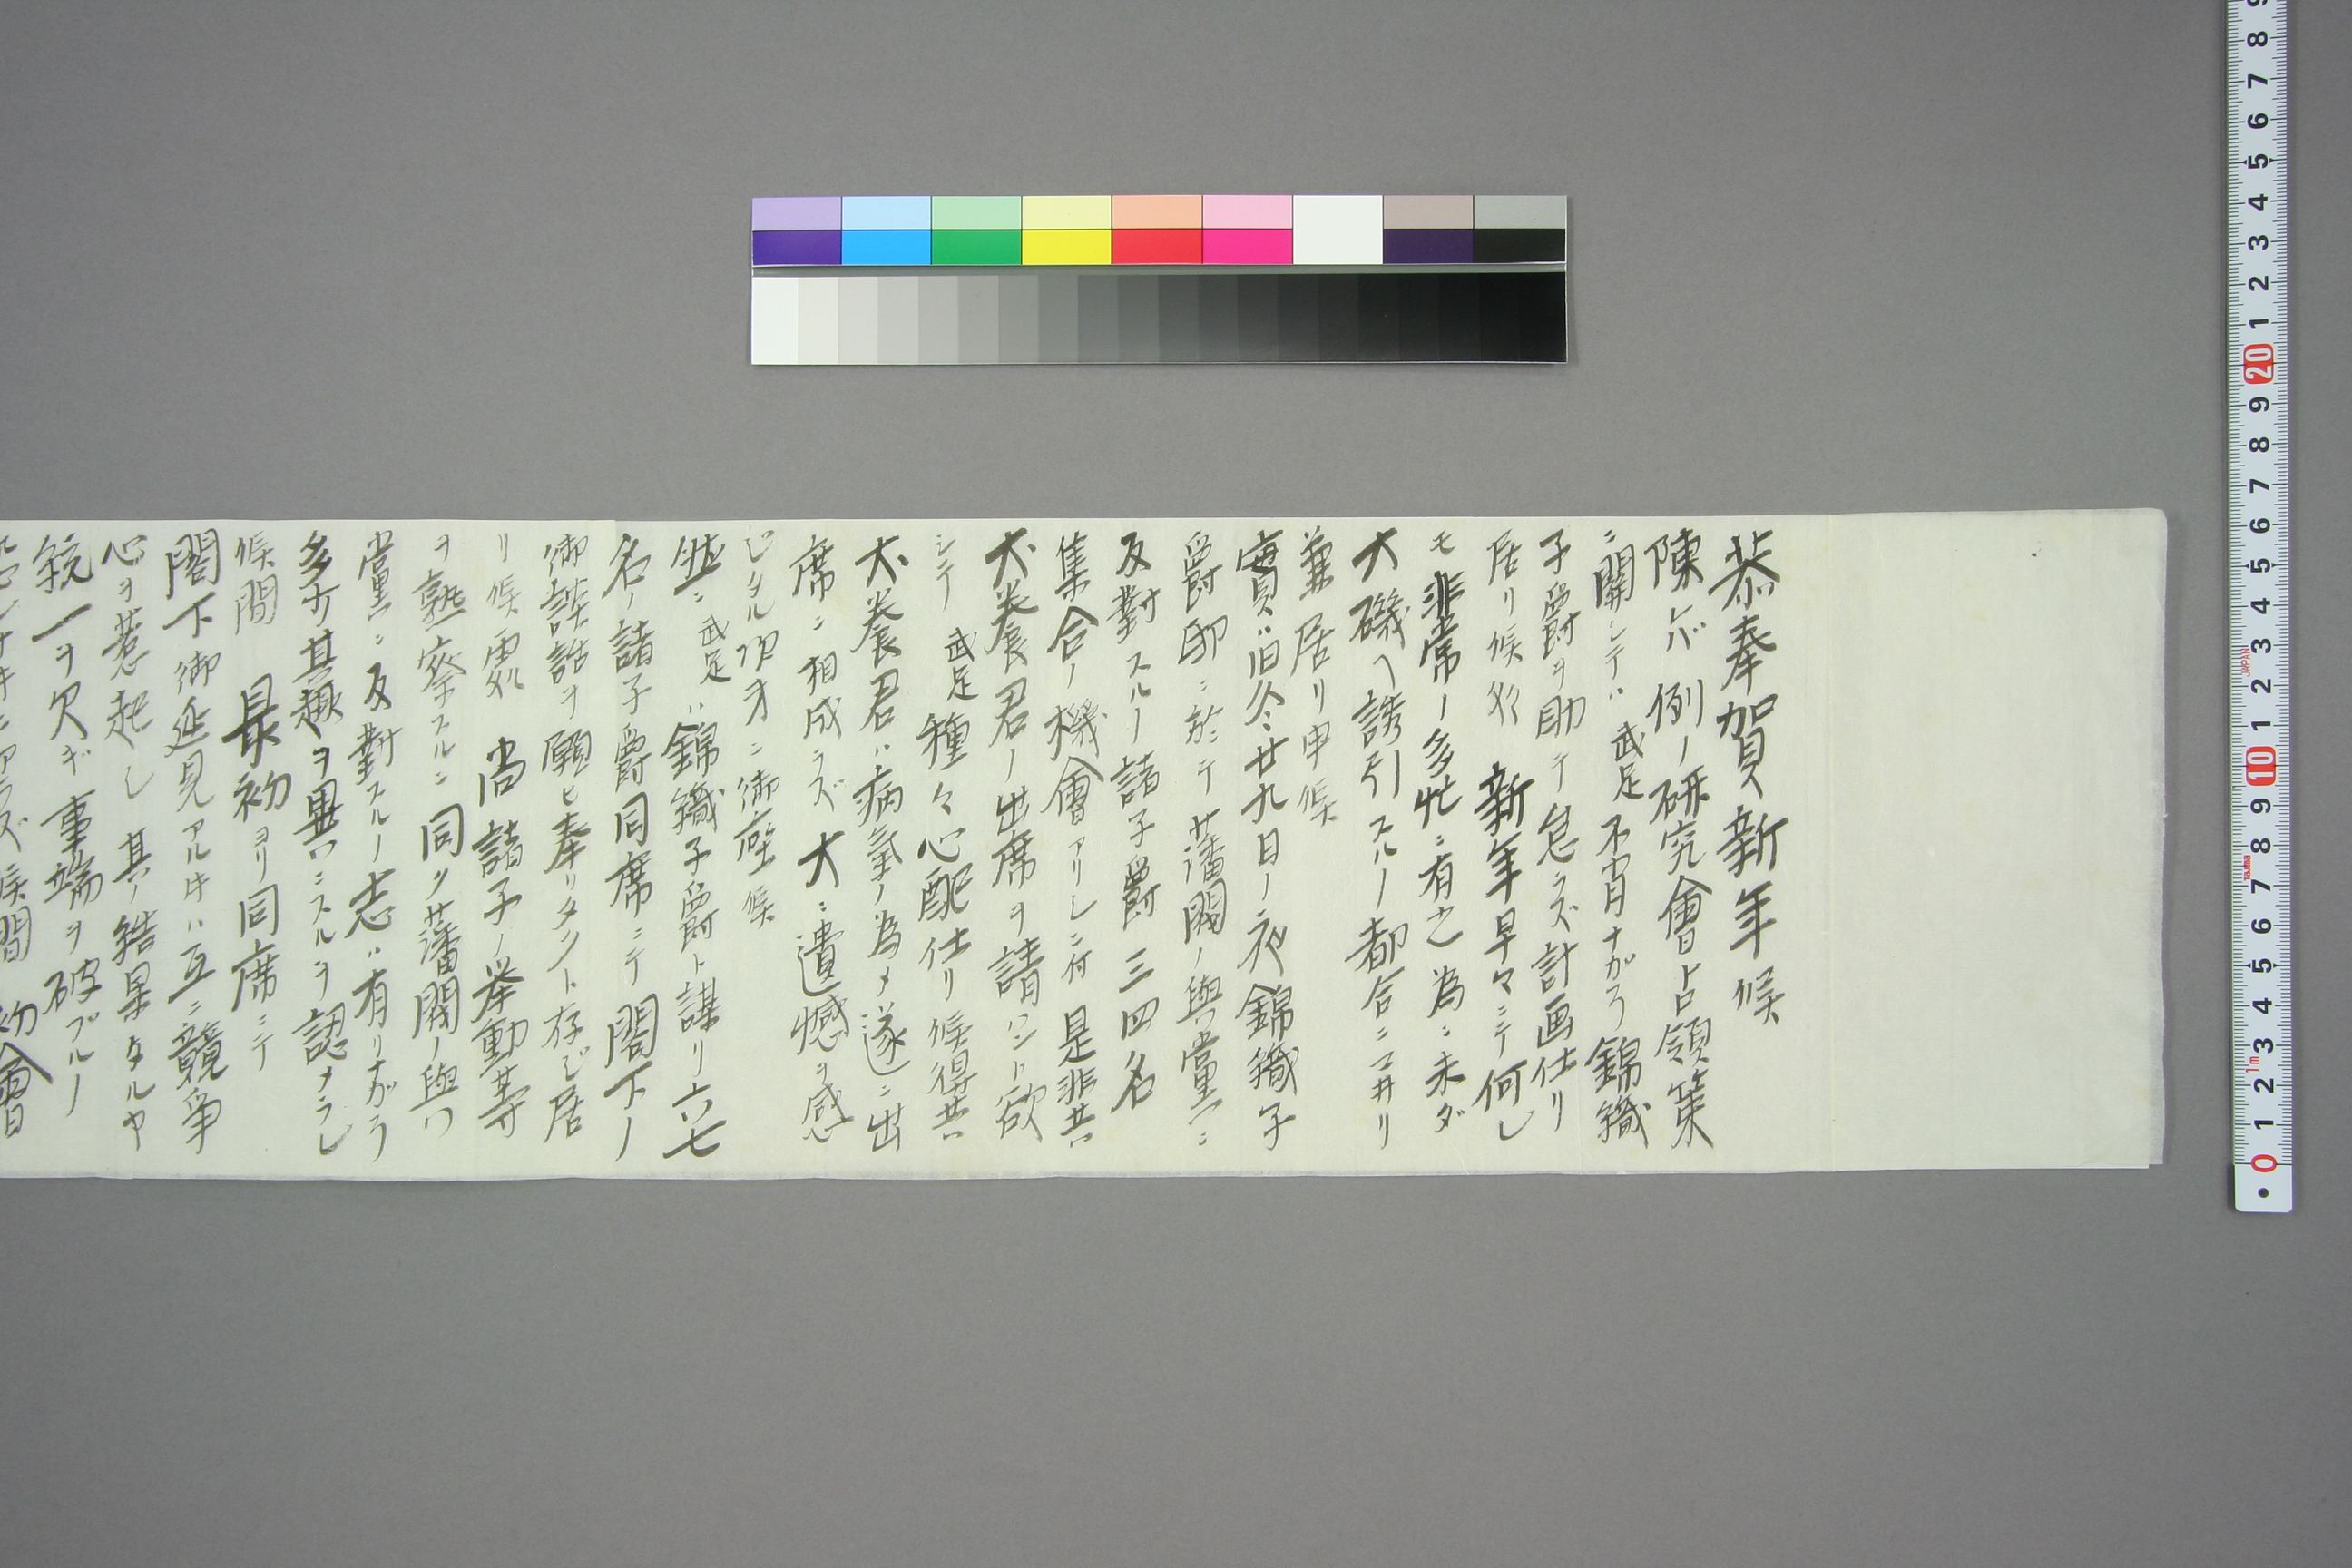 恭奉賀新年候
陳レバ例ノ研究會ト占領策
ニ關シテハ武足不肖ナガラ錦織
子爵ヲ助テ怠ラズ計画仕リ
居リ候処新年早々ニテ何レ
モ非常ノ多忙ニ有之為ニ未ダ
大磯ヘ誘引スルノ都合ニマ井リ
兼居リ申候
實ハ旧冬廿九日ノ夜錦織子
爵邸ニ於テ藩閥ノ與黨ニ
反對スルノ諸子爵三四名
集合ノ機會アリシニ付是非共
大養君ノ出席ヲ請ハント欲
シテ武足種々心配仕リ候得共
大養君ハ病氣ノ為メ遂ニ出
席ニ相成ラズ大ニ遺憾ヲ感
ジタル次才ニ御座候
然ニ武足ハ錦織子爵ト謀リ六七
名ノ諸子爵同席ニテ閣下ノ
御談話ヲ願ヒ奉リタント存ジ居
リ候處尚諸子ノ挙動等
ヲ熟察スルニ同ク藩閥ノ與
黨ニ反對スルノ志ハ有リナガラ
多少其趣ヲ異ニスルヲ認ナラレ
候間最初ヨリ同席ニテ
閣下御延見アル時ハ互ニ競爭
心ヲ惹起シ其ノ結果タルヤ
統一ヲ欠ギ事端ヲ破ブルノ
恐レナキニアラズ候間初會
0 1 2 3 4 5 6 7 8 9 10 1 2 3 4 5 6 7 8 9 20 1 2 3 4 5 6 7 8 9
1m
Tajima
JAPAN